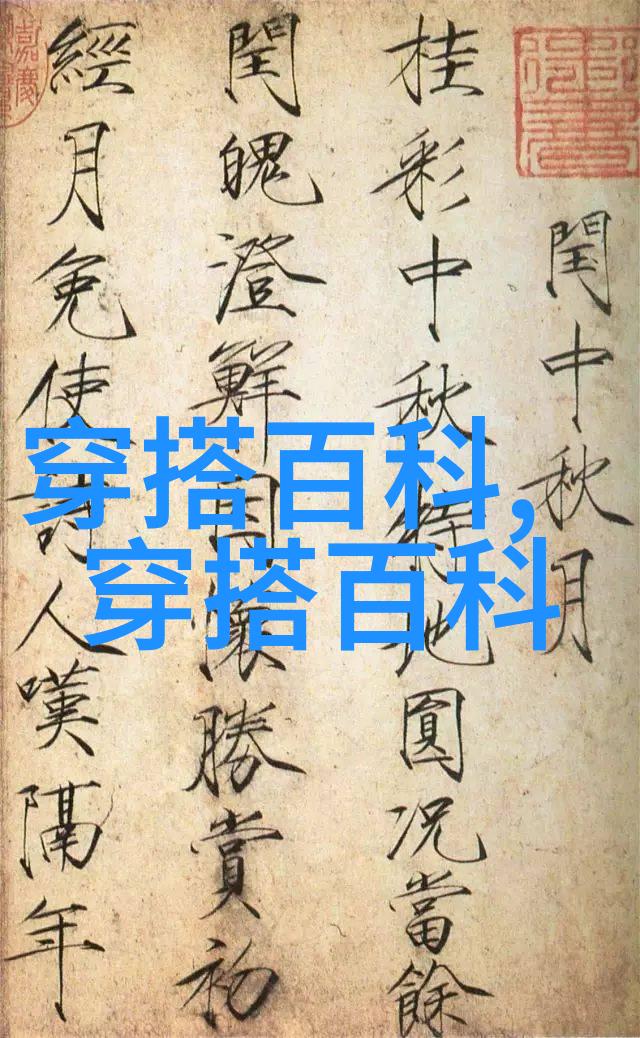 閏中秋月
桂彩中秋特地圓况當餘
閏魄澄鮮因懷勝賞初
經月免使詩人嘆隔年
穿搭百科,
穿搭百科